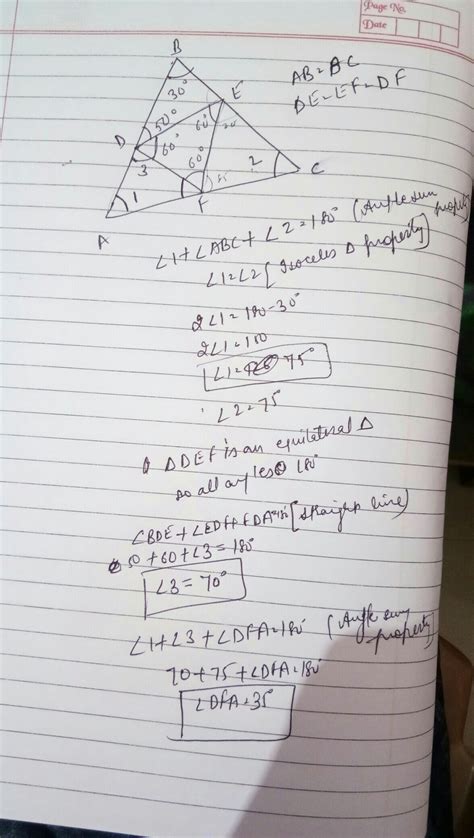 Page No.
Date
B
30°
E
50°
60°
D
60°
3
60°
2
C
1
F
A
AB=BC
DE=EF=DF
∠1+∠ABC+∠2=180° (Angle sum property)
∠1=∠2 [Isoceles Δ property]
2∠1=180-30°
2∠1=150
∠1= 75°
∠2=75
ΔDEF is an equilateral Δ
so all angles
∠BDE+∠EDF+FDA=180 [straight line)
50+60+∠3=180°
∠3=70°
∠1+∠3+∠DFA=180 (Angle sum property)
70+75+∠DFA=180
∠DFA=35°